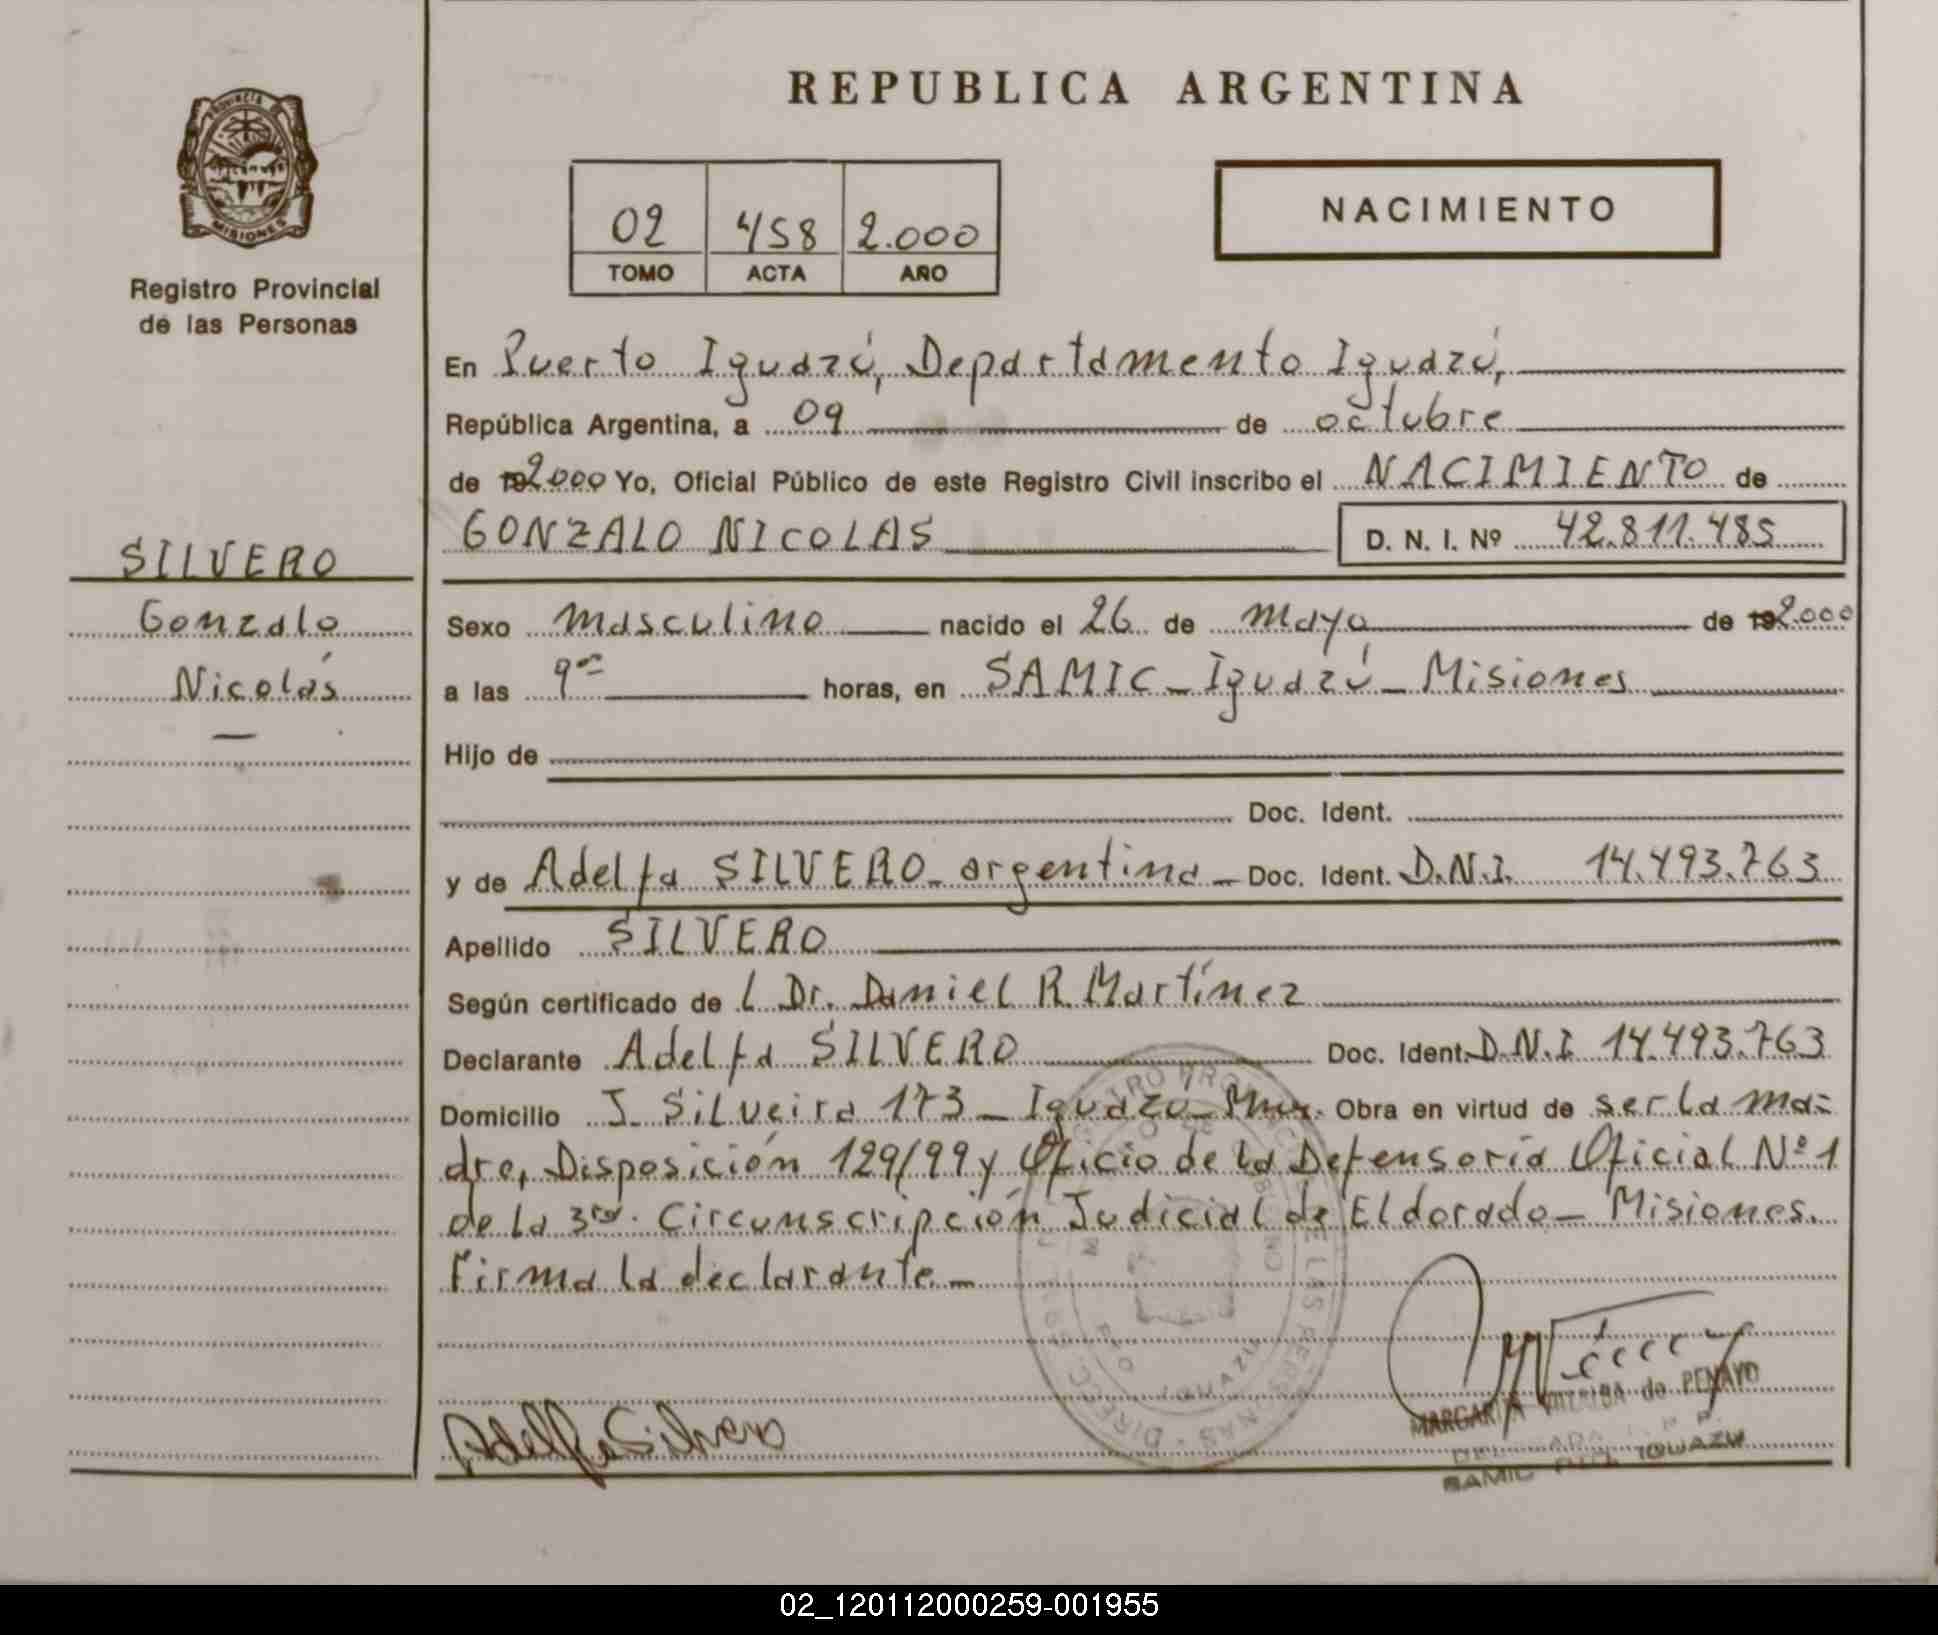 REPUBLICA ARGENTINA
PROVINCIA DE
MISIONES
Registro Provincial
de las Personas
02 458 2.000
TOMO ACTA AÑO
NACIMIENTO
En Puerto Iguazú, Departamento Iguazú,
República Argentina, a 09 de octubre
de 192000 Yo, Oficial Público de este Registro Civil inscribo el NACIMIENTO de
GONZALO NICOLAS D. N. I. Nº 42.811.485
SILVERO
Gonzalo
Nicolás
Sexo masculino nacido el 26 de mayo de 192.000
a las 9 horas, en SAMIC - Iguazú - Misiones
Hijo de
Doc. Ident.
y de Adelfa SILVERO - argentina - Doc. Ident. D.N.I. 14.493.763
Apellido SILVERO
Según certificado de l Dr. Daniel R. Martínez
Declarante Adelfa SILVERO Doc. Ident. D.N.I 14.493.763
Domicilio J. Silveira 173 - Iguazú - Mnes. Obra en virtud de ser la ma=
dre, Disposición 129/99 y Oficio de la Defensoría Oficial Nº 1
de la 3ra. Circunscripción Judicial de Eldorado - Misiones.
Firma la declarante. -
Adelfa Silvero
MARGARITA VILLALBA de PENAYO
DELEGADA R. P. P.
SAMIC PTO. IGUAZU
02_120112000259-001955